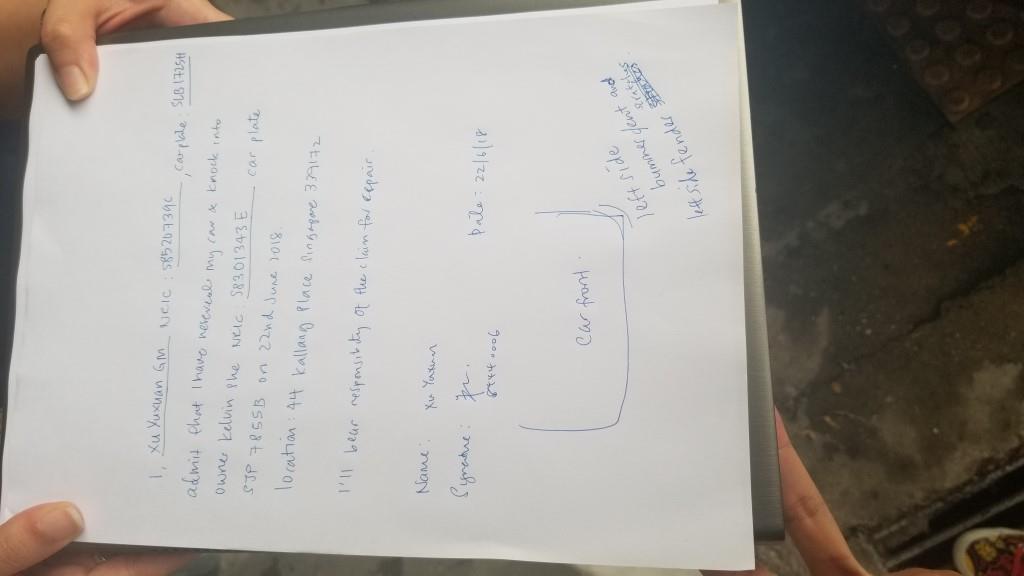 I, Xu Yuxuan Gm NRIC : S8520739C , car plate : SLB1725H
admit that I have reversed my car & knock into
owner kelvin phe NRIC : S8301343E car plate
SJP 7855B on 22nd June 2018.
location : 44 kallang Place Singapore 339172
I'll bear responsibility of the claim for repair.
Name : Xu Yuxuan
Signature :
Date : 22/6/18
Car front.
left side
bumper dent and
scratches
left side fender